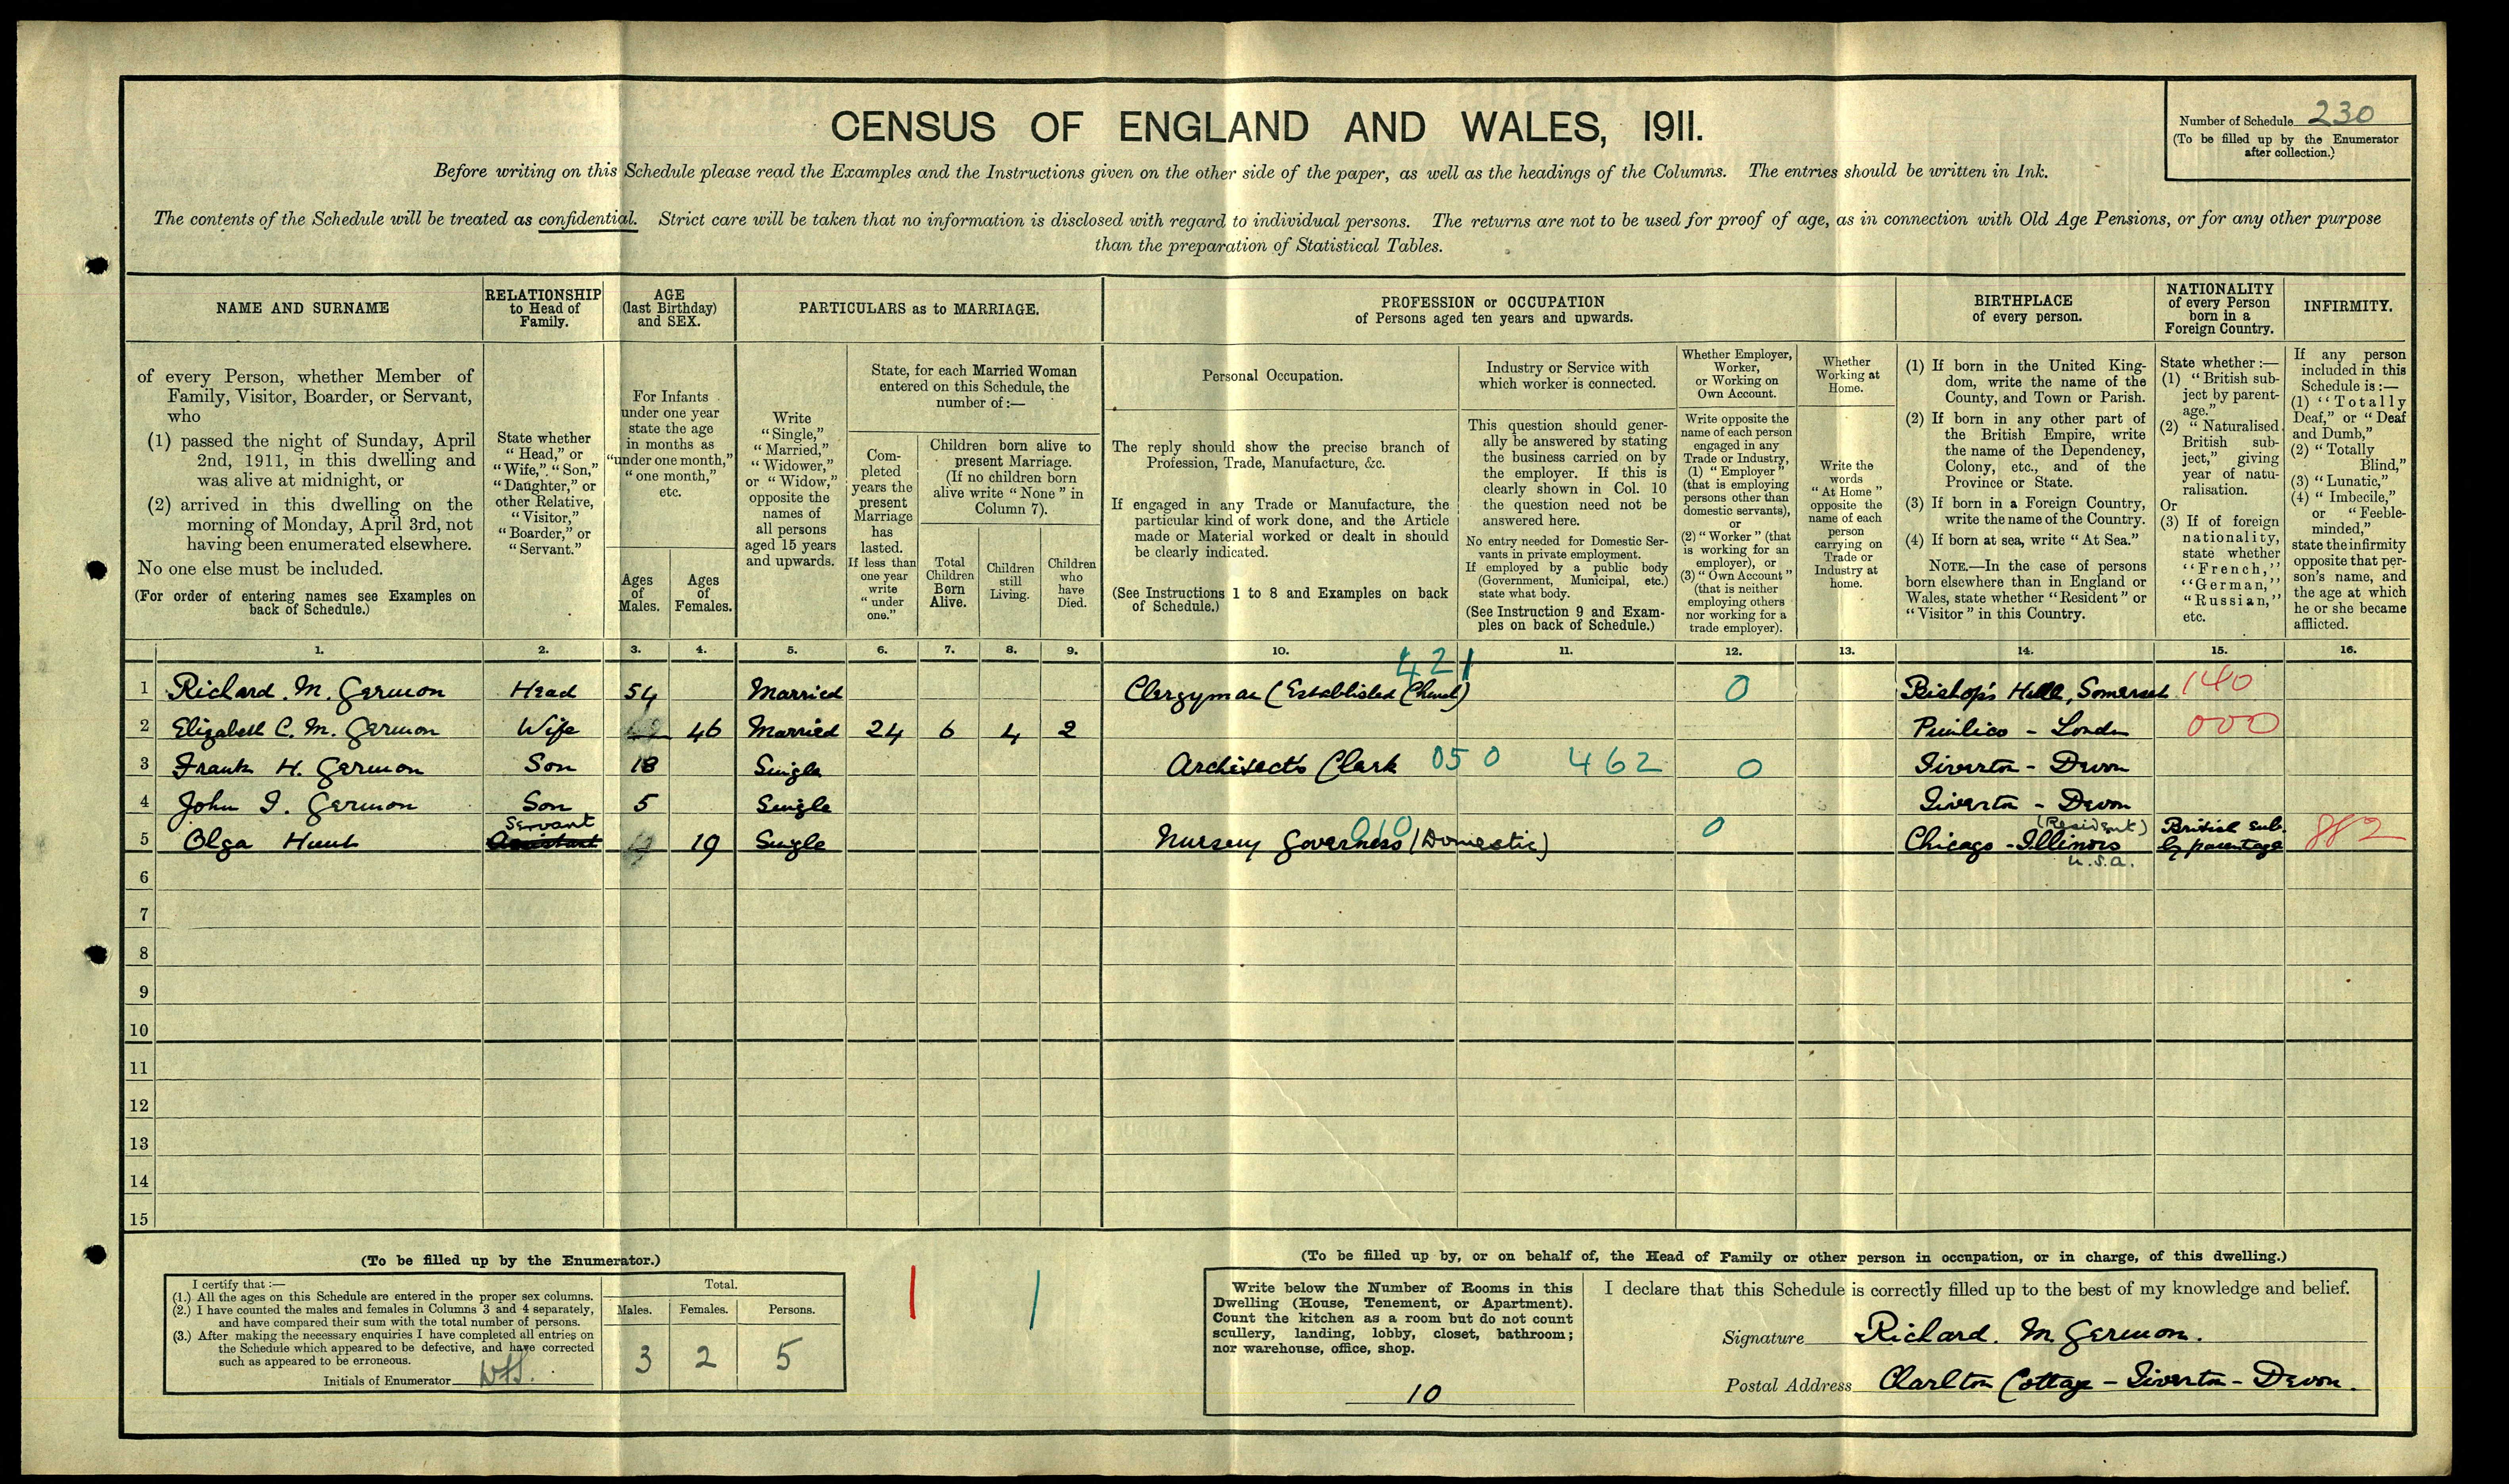 CENSUS OF ENGLAND AND WALES, 1911.
Number of Schedule 230
(To be filled up by the Enumerator
after collection.)
Before writing on this Schedule please read the Examples and the Instructions given on the other side of the paper, as well as the headings of the Columns. The entries should be written in Ink.
The contents of the Schedule will be treated as confidential. Strict care will be taken that no information is disclosed with regard to individual persons. The returns are not to be used for proof of age, as in connection with Old Age Pensions, or for any other purpose
than the preparation of Statistical Tables.
NAME AND SURNAME
of every Person, whether Member of
Family, Visitor, Boarder, or Servant,
who
(1) passed the night of Sunday, April
2nd, 1911, in this dwelling and
was alive at midnight, or
(2) arrived in this dwelling on the
morning of Monday, April 3rd, not
having been enumerated elsewhere.
No one else must be included.
(For order of entering names see Examples on
back of Schedule.)
RELATIONSHIP
to Head of
Family.
State whether
"Head," or
"Wife," "Son,"
"Daughter," or
other Relative,
"Visitor,"
"Boarder," or
"Servant."
AGE
(last Birthday)
and SEX.
For Infants
under one year
state the age
in months as
"under one month,"
"one month,"
etc.
Ages
of
Males.
Ages
of
Females.
PARTICULARS as to MARRIAGE.
Write
"Single,"
"Married,"
"Widower,"
or "Widow,"
opposite the
names of
all persons
aged 15 years
and upwards.
State, for each Married Woman
entered on this Schedule, the
number of :—
Com-
pleted
years the
present
Marriage
has
lasted.
If less than
one year
write
"under
one."
Children born alive to
present Marriage.
(If no children born
alive write "None" in
Column 7).
Total
Children
Born
Alive.
Children
still
Living.
Children
who
have
Died.
PROFESSION or OCCUPATION
of Persons aged ten years and upwards.
Personal Occupation.
The reply should show the precise branch of
Profession, Trade, Manufacture, &c.
If engaged in any Trade or Manufacture, the
particular kind of work done, and the Article
made or Material worked or dealt in should
be clearly indicated.
(See Instructions 1 to 8 and Examples on back
of Schedule.)
Industry or Service with
which worker is connected.
This question should gener-
ally be answered by stating
the business carried on by
the employer. If this is
clearly shown in Col. 10
the question need not be
answered here.
No entry needed for Domestic Ser-
vants in private employment.
If employed by a public body
(Government, Municipal, etc.)
state what body.
(See Instruction 9 and Exam-
ples on back of Schedule.)
Whether Employer,
Worker,
or Working on
Own Account.
Write opposite the
name of each person
engaged in any
Trade or Industry,
(1) "Employer"
(that is employing
persons other than
domestic servants),
or
(2) "Worker" (that
is working for an
employer), or
(3) "Own Account"
(that is neither
employing others
nor working for a
trade employer).
Whether
Working at
Home.
Write the
words
"At Home"
opposite the
name of each
person
carrying on
Trade or
Industry at
home.
BIRTHPLACE
of every person.
(1) If born in the United King-
dom, write the name of the
County, and Town or Parish.
(2) If born in any other part of
the British Empire, write
the name of the Dependency,
Colony, etc., and of the
Province or State.
(3) If born in a Foreign Country,
write the name of the Country.
(4) If born at sea, write "At Sea."
NOTE.—In the case of persons
born elsewhere than in England or
Wales, state whether "Resident" or
"Visitor" in this Country.
NATIONALITY
of every Person
born in a
Foreign Country.
State whether :—
(1) "British sub-
ject by parent-
age."
(2) "Naturalised
British sub-
ject," giving
year of natu-
ralisation.
Or
(3) If of foreign
nationality,
state whether
"French,"
"German,"
"Russian,"
etc.
INFIRMITY.
If any person
included in this
Schedule is :—
(1) "Totally
Deaf," or "Deaf
and Dumb,"
(2) "Totally
Blind,"
(3) "Lunatic,"
(4) "Imbecile,"
or "Feeble-
minded,"
state the infirmity
opposite that per-
son's name, and
the age at which
he or she became
afflicted.
1. 2. 3. 4. 5. 6. 7. 8. 9. 10. 11. 12. 13. 14. 15. 16.
421
1 Richard. M. Germon Head 54 Married Clergyman (Established Church) 0 Bishop's Hull, Somerset 140
2 Elizabeth C. M. Germon Wife 46 Married 24 6 4 2 Pimlico - London 000
3 Frank H. Germon Son 18 Single Architects Clerk 050 462 0 Tiverton - Devon
4 John I. Germon Son 5 Single Tiverton - Devon
Servant 010 0 (Resident) British sub.
5 Olga Hunt Assistant 19 Single Nursery Governess (Domestic) Chicago - Illinois by parentage 882
U.S.A.
6
7
8
9
10
11
12
13
14
15
(To be filled up by the Enumerator.)
I certify that :—
(1.) All the ages on this Schedule are entered in the proper sex columns.
(2.) I have counted the males and females in Columns 3 and 4 separately,
and have compared their sum with the total number of persons.
(3.) After making the necessary enquiries I have completed all entries on
the Schedule which appeared to be defective, and have corrected
such as appeared to be erroneous.
Initials of Enumerator
Total.
Males. Females. Persons.
3 2 5
(To be filled up by, or on behalf of, the Head of Family or other person in occupation, or in charge, of this dwelling.)
Write below the Number of Rooms in this
Dwelling (House, Tenement, or Apartment).
Count the kitchen as a room but do not count
scullery, landing, lobby, closet, bathroom;
nor warehouse, office, shop.
10
I declare that this Schedule is correctly filled up to the best of my knowledge and belief.
Signature Richard. M Germon.
Postal Address Clarlton Cottage - Tiverton - Devon.